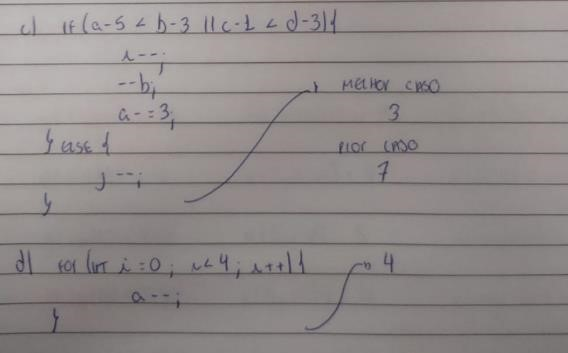 c) if (a-5 < b-3 || c-1 < d-3){
i--;
--b;
a-=3;
} else {
j--;
}
MELHOR CASO
3
PIOR CASO
7
d) for (int i=0; i<4; i++){
a--;
}
4